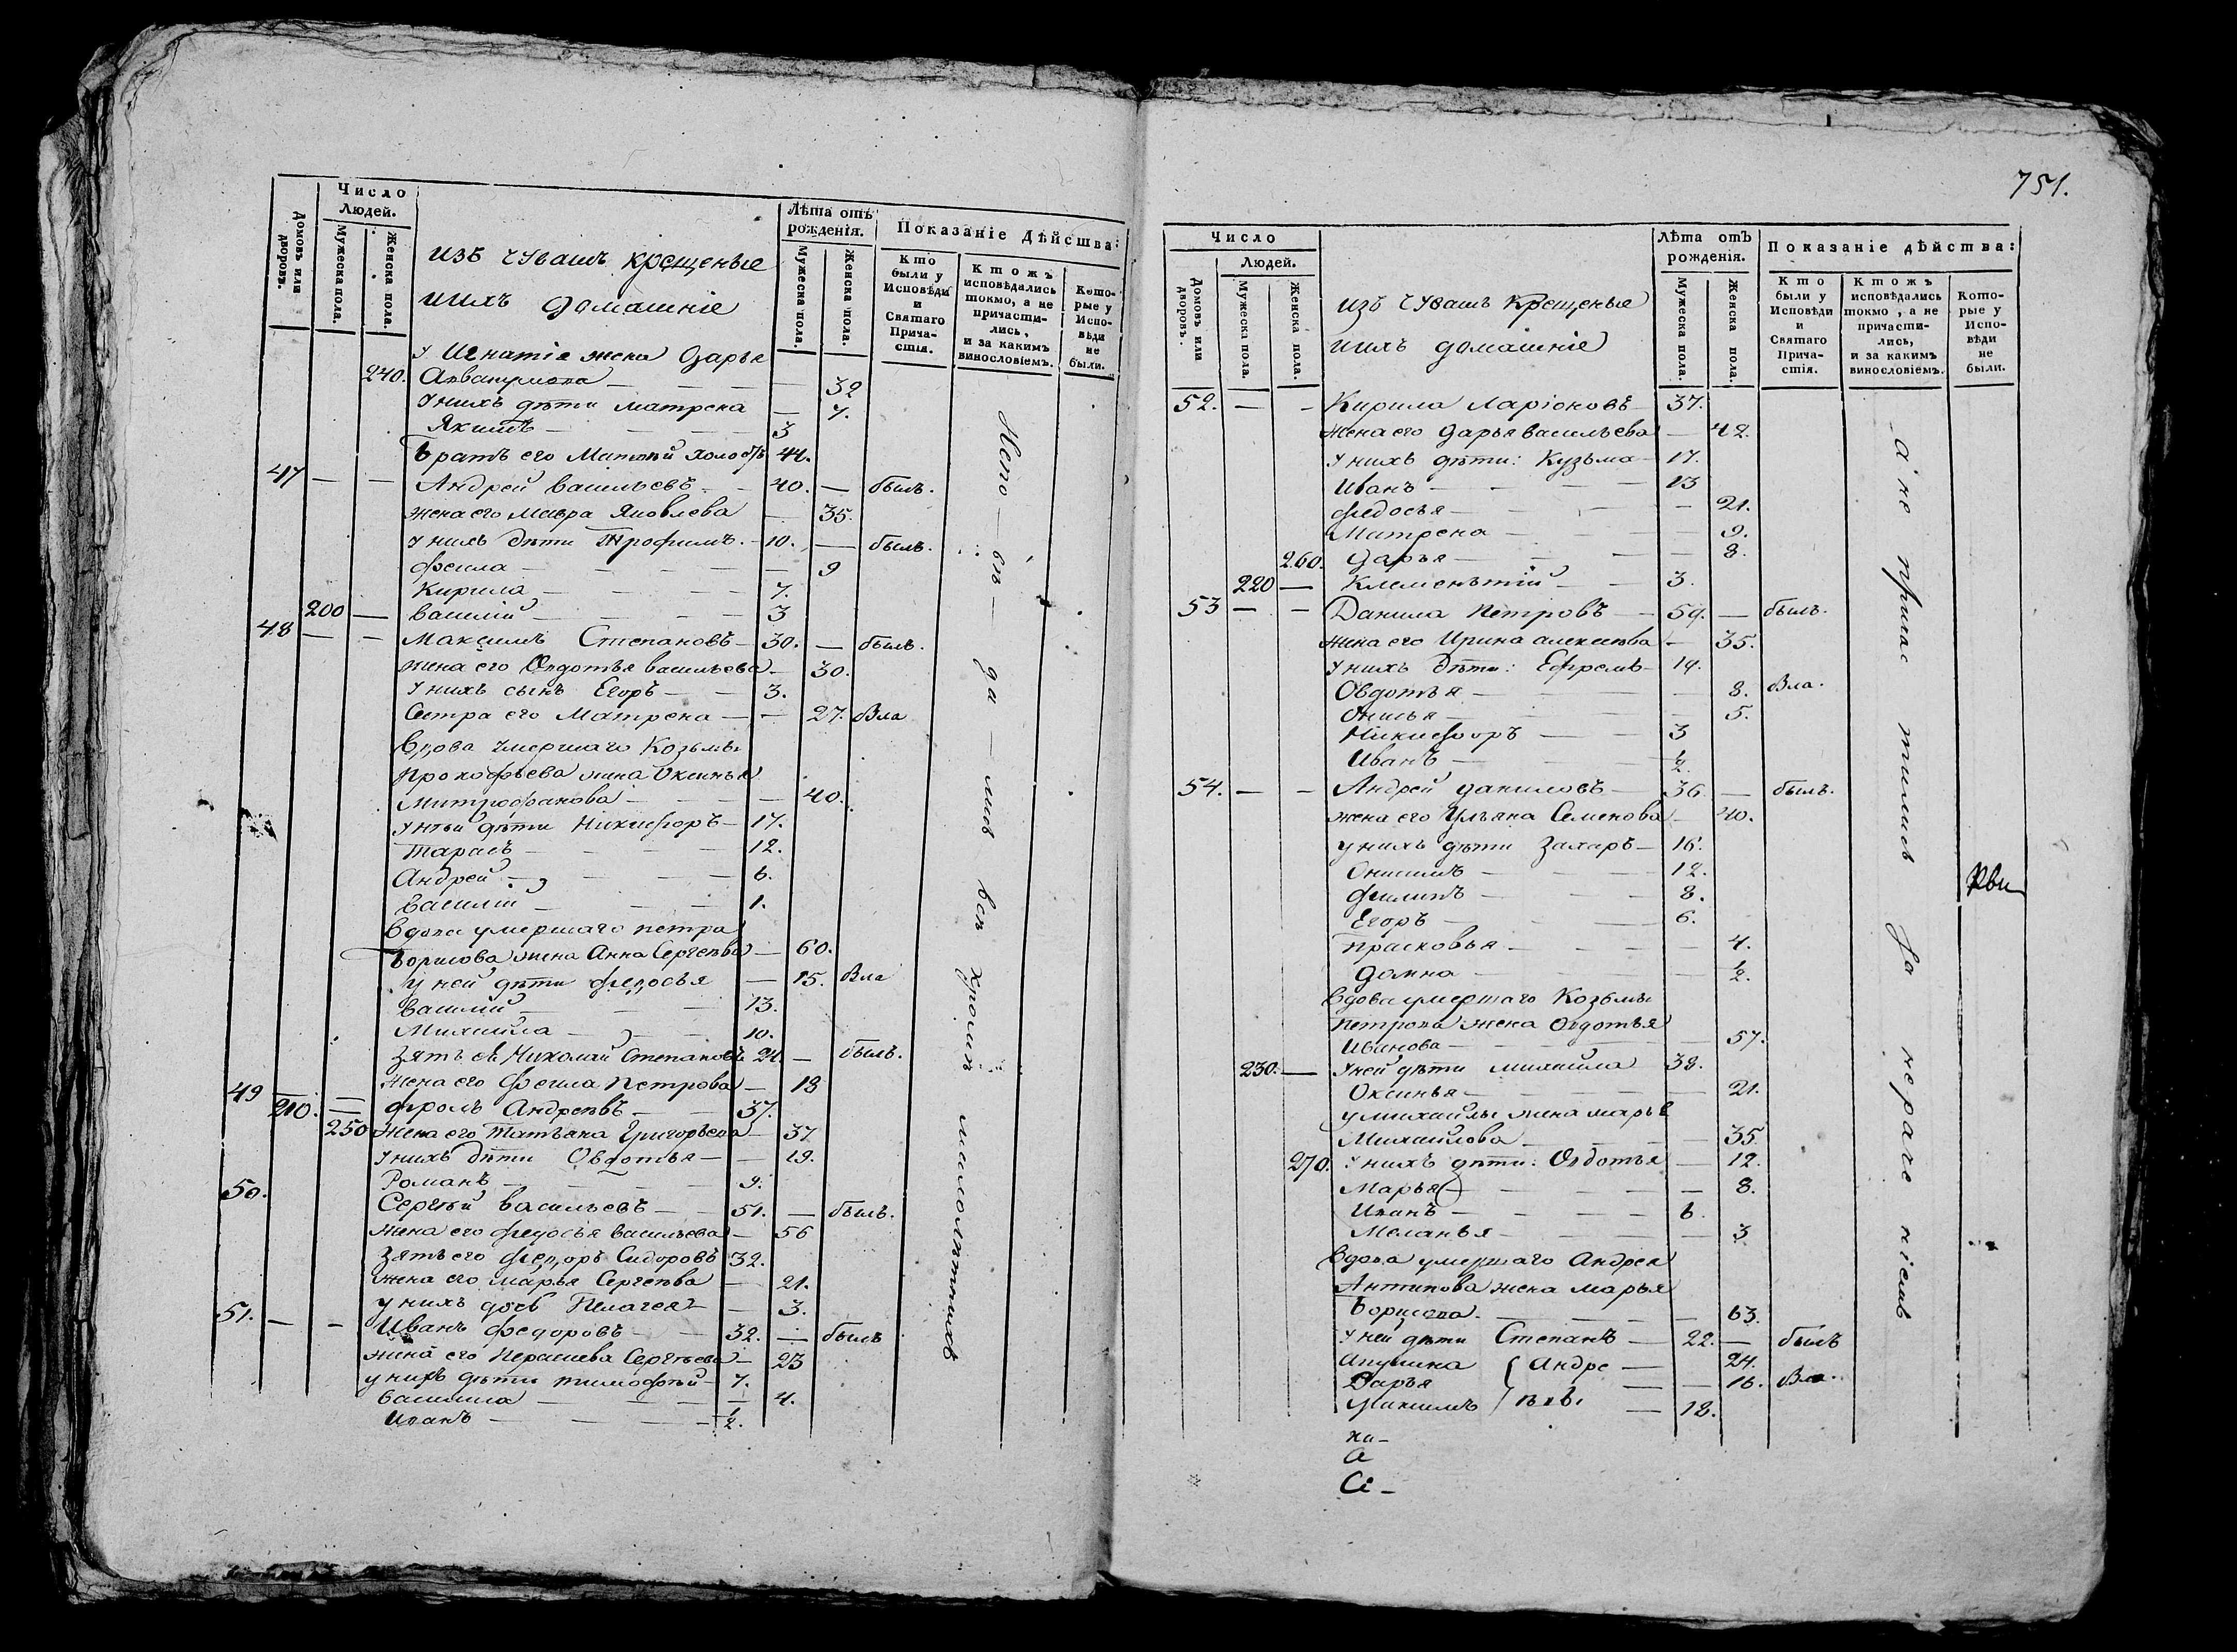 Число
Людей.
Домовъ или дворовъ.
Мужеска пола.
Женска пола.
изъ чувашъ крещеные
и ихъ домашніе
Лѣта отъ рожденія.
Мужеска пола.
Женска пола.
Показаніе дѣйства:
Кто были у Исповѣди и Святаго Прича-стія.
Ктожъ исповѣдались токмо, а не причасти-лись, и за какимъ винословіемъ.
Кото-рые у Испо-вѣди не были.
У Игнатія жена Дарья
240. — — — 32
У нихъ дѣти Матрена — 7.
Якимъ — — — 3
Братъ его Матвѣй холостъ 44.
47 — — Андрей Васильевъ — 40. — былъ.
жена его Мавра Яковлева — 35.
у нихъ дѣти Трофимъ. — 10. — былъ.
Фекла — — — 9
Кирила — — — 7.
200 — Василій — — — 3
48 — — Максимъ Степановъ — 30. — былъ.
жена его Овдотья Васильева — 30.
у нихъ сынъ Егоръ — — 3.
Сестра его Матрена — — 27. Вла
Вдова умершаго Козьмы
Прокофьева жена Оксинья
Митрофанова — — — 40.
у ней дѣти Никифоръ — 17.
Тарасъ — — — 12.
Андрей — — — 6.
Василій — — — 1.
Вдова умершаго Петра
Борисова жена Анна Сергѣева — 60.
у ней дѣти Федосья — 15. Вла
Василій — — — 13.
Михайла — — — 10.
зять ея Николай Степановъ 24. — былъ.
жена его Фекла Петрова — 18
49 210. — Фролъ Андреевъ — — 37.
250 жена его Татьяна Григорьева — 37.
у нихъ дѣти Овдотья — — 19.
Романъ — — — 9.
50. Сергѣй Васильевъ — — 51. — былъ.
жена его Федосья Васильева — 56
зять его Федоръ Сидоровъ 32.
жена его Марья Сергѣева — 21.
у нихъ дочь Пелагея — — 3.
51. — — Иванъ Федоровъ — — 32. — былъ
жена его Сергѣева — 23
у нихъ дѣти Тимофѣй — 7.
Василиса — — — 4.
Иванъ — — — 1/2.
да всѣ кромѣ малолѣтнихъ
751.
Число
Людей.
Домовъ или дворовъ.
Мужеска пола.
Женска пола.
изъ чувашъ крещеные
и ихъ домашніе
Лѣта отъ рожденія.
Мужеска пола.
Женска пола.
Показаніе дѣйства:
Кто были у Исповѣди и Святаго Прича-стія.
Ктожъ исповѣдались токмо, а не причасти-лись, и за какимъ винословіемъ.
Кото-рые у Испо-вѣди не были.
52. — — Кирила Ларіоновъ — 37.
жена его Дарья Васильева — 42.
у нихъ дѣти: Кузьма — 17.
Иванъ — — — 13
Федосья — — — 21.
Матрена — — — 9.
260. Дарья — — — 8.
220 — Клеменьтій — — 3.
53 — — Данила Петровъ — 59. — былъ.
жена его Ирина Алексѣева — 35.
у нихъ дѣти: Ефремъ — 19.
Овдотья — — — 8. Вла.
Онисья — — — 5.
Никифоръ — — — 3
Иванъ — — — 1/2.
54. — — Андрей Даниловъ — 36. — былъ.
жена его Ульяна Семенова — 40.
у нихъ дѣти Захаръ — 16.
Онисимъ — — — 12.
Филипъ — — — 8.
Егоръ — — — 6.
Прасковья — — — 4.
Домна — — — 1/2.
Вдова умершаго Козьмы
Петрова жена Овдотья
Иванова — — — 57.
230. — У ней дѣти Михайла 38.
Оксинья — — — 21.
у Михайлы жена Марья
Михайлова — — — 35.
270. у нихъ дѣти: Овдотья — 12.
Марья — — — 8.
Иванъ — — — 6.
Меланья — — — 3
Вдова умершаго Андрея
Антипова жена Марья
Борисова. — — — 63.
у ней дѣти Степанъ — 22. — былъ
Андре — 24.
Дарья — — 16. Вла.
Максимъ — 18.
ки-
а
а не причастились за нераченіемъ